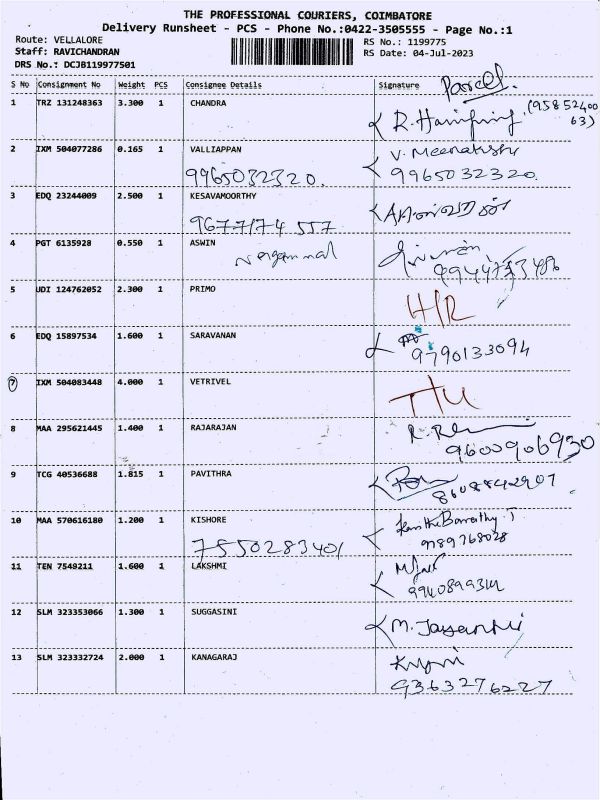 THE PROFESSIONAL COURIERS, COIMBATORE
Delivery Runsheet - PCS - Phone No.:0422-3505555 - Page No.:1
Route: VELLALORE
Staff: RAVICHANDRAN
DRS No.: DCJB119977501
RS No.: 1199775
RS Date: 04-Jul-2023
S No Consignment No Weight PCS Consignee Details Signature
Parcel.
1 TRZ 131248363 3.300 1 CHANDRA
(95852400
63)
2 IXM 504077286 0.165 1 VALLIAPPAN V. Meenatshi
9965032320. 9965032320.
3 EDQ 23244009 2.500 1 KESAVAMOORTHY
9677174 557
4 PGT 6135928 0.550 1 ASWIN
5 UDI 124762052 2.300 1 PRIMO H/R
6 EDQ 15897534 1.600 1 SARAVANAN
9790133094
7 IXM 504083448 4.000 1 VETRIVEL
8 MAA 295621445 1.400 1 RAJARAJAN
9600906930
9 TCG 40536688 1.815 1 PAVITHRA
8608842907
10 MAA 570616180 1.200 1 KISHORE
7550283401 9789768028
11 TEN 7549211 1.600 1 LAKSHMI
12 SLM 323353066 1.300 1 SUGGASINI M. Jayanthi
13 SLM 323332724 2.000 1 KANAGARAJ
9363276227